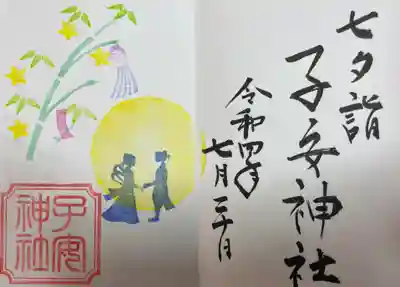 七夕詣
子安神社
令和四年
七月二十日
子安
神社